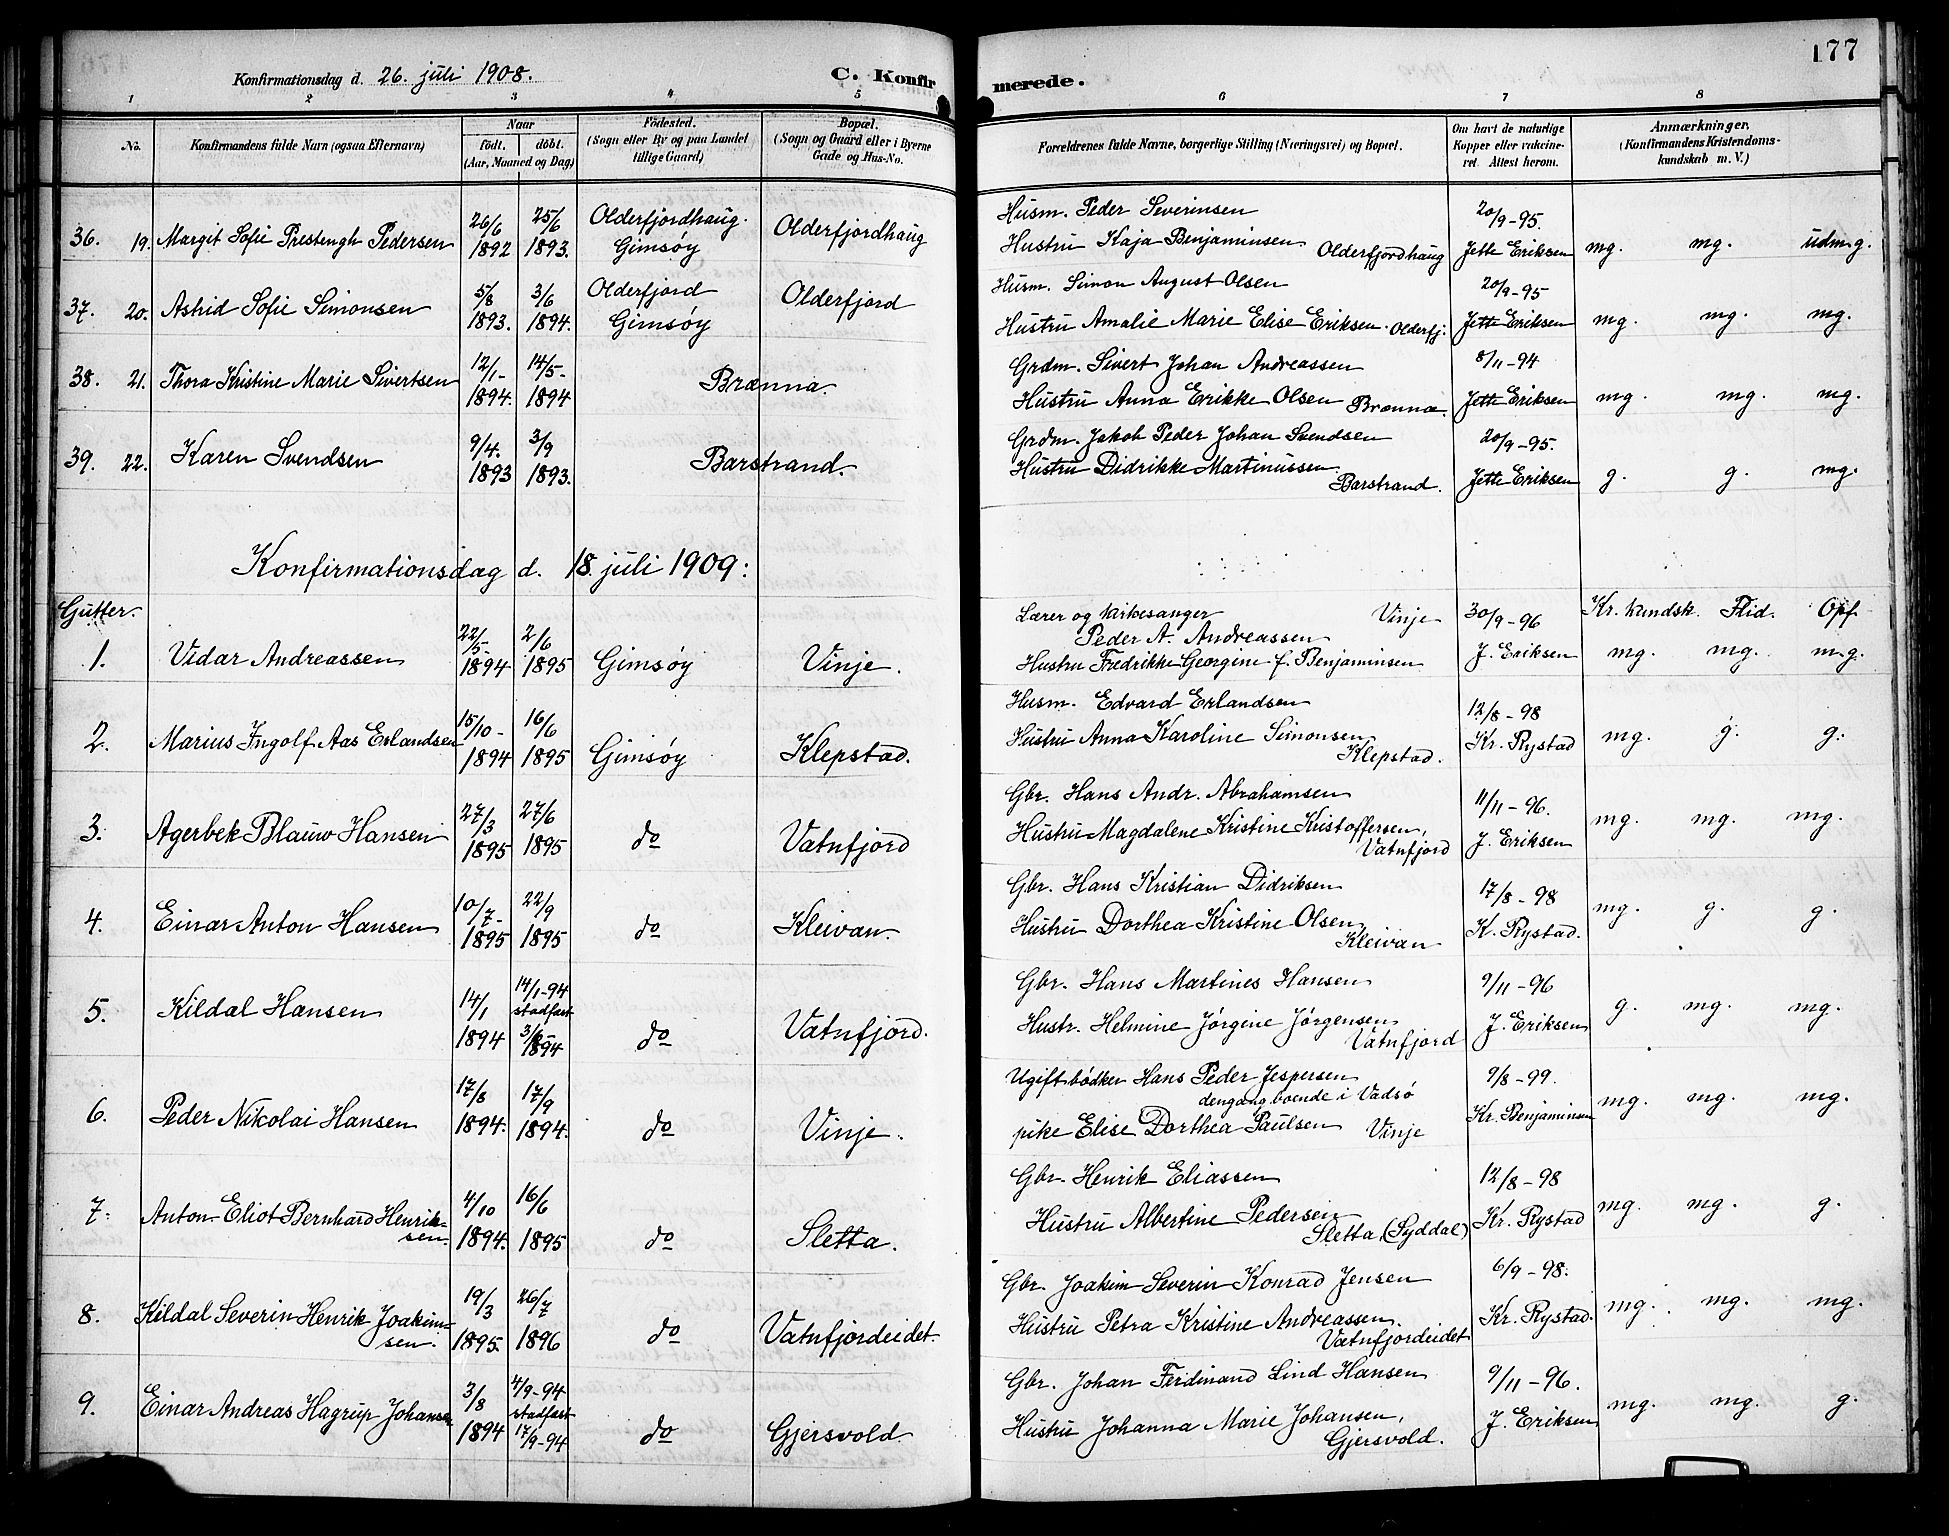 177
Konfirmationsdag d. 26. juli 1908.
C. Konfirmerede.
1 2 3 4 5 6 7 8
No.
Konfirmandens fulde Navn (ogsaa Efternavn)
Naar
födt. döbt.
(Aar, Maaned og Dag)
Födested.
(Sogn eller By og paa Landet
tillige Gaard)
Bopæl.
(Sogn og Gaard eller i Byerne
Gade og Hus-No.
Forældrenes fulde Navne, borgerlige Stilling (Næringsvei) og Bopæl.
Om havt de naturlige
Kopper eller vakcine-
ret. Attest herom.
Anmærkninger.
(Konfirmandens Kristendoms-
kundskab m. V.)
36. 19. Margit Sofie Prestengh Pedersen 26/6 1892 25/6 1893. Olderfjordhaug. Gimsöy Olderfjordhaug
Husm. Peder Severinsen
Hustru Kaja Benjaminsen Olderfjordhaug
20/9-95. Jette Eriksen mg. mg. udm.g.
37. 20. Astrid Sofie Simonsen 5/8 1893. 3/6 1894. Olderfjord Gimsöy Olderfjord
Husm. Simon August Olsen
Hustru Amalie Marie Elise Eriksen. Olderfj.
20/9-95 Jette Eriksen mg. mg. mg.
38. 21. Thora Kristine Marie Sivertsen 12/1- 1894. 14/5- 1894 Brænna.
Grdm. Sivert Johan Andreassen
Hustru Anna Erikke Olsen Brænna.
8/11-94 Jette Eriksen mg. mg. mg.
39. 22. Karen Svendsen 9/4. 1893 3/9 1893. Barstrand.
Grdm. Jakob Peder Johan Svendsen
Hustru Didrikke Martinussen.
Barstrand.
20/9-95. Jette Eriksen g. g. mg.
Konfirmationsdag d. 18. juli 1909:
Gutter.
Kr. kundsk. Flid. Opf
1. Vidar Andreassen 22/5- 1894 2/6 1895 Gimsöy Vinje.
Lærer og kirkesanger Vinje
Peder A. Andreassen
Hustru Fredrikke Georgine f. Benjaminsen
30/9-96 J. Eriksen mg. mg. m.g.
2. Marius Ingolf Aas Erlandsen 15/10- 1894 16/6 1895 Gimsöy Klepstad.
Husm. Edvard Erlandsen
Hustru Anna Karoline Simonsen,
Klepstad.
12/8-98 Kr. Rystad mg. g. g.
3. Agerbek Blauw Hansen 27/3 1895 27/6 1895 do Vatnfjord
Gbr. Hans Andr. Abrahamsen
Hustru Magdalene Kristine Kristoffersen,
Vatnfjord
11/11-96. J. Eriksen mg. mg. mg.
4. Einar Anton Hansen 10/7- 1895 22/9 1895 do Kleivan.
Gbr. Hans Kristian Didriksen
Hustru Dorthea Kristine Olsen,
Kleivan
17/8-98 K. Rystad. mg. g. g.
5. Kildal Hansen 14/1 1894 14/1-94 stadfæst 1894 do Vatnfjord.
Gbr. Hans Martines Hansen
Hustr. Helmine Jörgine Jörgensen
Vatnfjord
9/11-96 J. Eriksen g. mg. mg.
6. Peder Nikolai Hansen 17/8 1894. 17/9 1894. do Vinje.
Ugift bödker Hans Peder Jespersen
dengang boende i Vadsö
pike Elise Dorthea Paulsen Vinje
9/8-99. Kr. Benjaminsen mg. mg. mg.
7. Anton Eliot Bernhard Henrik-
sen. 4/10 1894. 16/6 1895 do Sletta.
Gbr. Henrik Eliassen
Hustru Albertine Pedersen
Sletta, (Syddal)
12/8-98 Kr. Rystad mg. mg. g.
8. Kildal Severin Henrik Joakim-
sen. 19/3 1895. 26/7 1896 do Vatnfjordeidet
Gbr. Joakim Severin Konrad Jensen
Hustru Petra Kristine Andreassen.
Vatnfjordeidet
6/9-98. Kr. Rystad. mg. mg. mg.
9. Einar Andreas Hagrup Johansen 3/8 1894 4/9-94 stadfæst 17/9-94 do Gjersvold
Gbr. Johan Ferdinand Lind Hansen
Hustru Johanna Marie Johansen,
Gjersvold.
9/11-96. J. Eriksen mg. mg. g.